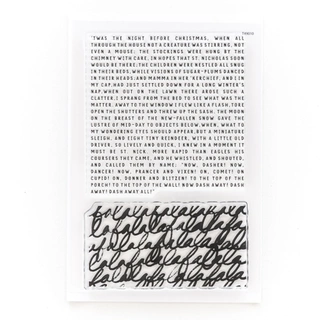 'TWAS THE NIGHT BEFORE CHRISTMAS, WHEN ALL
THROUGH THE HOUSE NOT A CREATURE WAS STIRRING, NOT
EVEN A MOUSE; THE STOCKINGS WERE HUNG BY THE
CHIMNEY WITH CARE, IN HOPES THAT ST. NICHOLAS SOON
WOULD BE THERE; THE CHILDREN WERE NESTLED ALL SNUG
IN THEIR BEDS, WHILE VISIONS OF SUGAR-PLUMS DANCED
IN THEIR HEADS; AND MAMMA IN HER 'KERCHIEF, AND I IN
MY CAP, HAD JUST SETTLED DOWN FOR A LONG WINTER'S
NAP, WHEN OUT ON THE LAWN THERE AROSE SUCH A
CLATTER, I SPRANG FROM THE BED TO SEE WHAT WAS THE
MATTER. AWAY TO THE WINDOW I FLEW LIKE A FLASH, TORE
OPEN THE SHUTTERS AND THREW UP THE SASH. THE MOON
ON THE BREAST OF THE NEW-FALLEN SNOW GAVE THE
LUSTRE OF MID-DAY TO OBJECTS BELOW, WHEN, WHAT TO
MY WONDERING EYES SHOULD APPEAR, BUT A MINIATURE
SLEIGH, AND EIGHT TINY REINDEER, WITH A LITTLE OLD
DRIVER, SO LIVELY AND QUICK, I KNEW IN A MOMENT IT
MUST BE ST. NICK. MORE RAPID THAN EAGLES HIS
COURSERS THEY CAME, AND HE WHISTLED, AND SHOUTED,
AND CALLED THEM BY NAME; "NOW, DASHER! NOW,
DANCER! NOW, PRANCER AND VIXEN! ON, COMET! ON
CUPID! ON, DONNER AND BLITZEN! TO THE TOP OF THE
PORCH! TO THE TOP OF THE WALL! NOW DASH AWAY! DASH
AWAY! DASH AWAY ALL!"
falalalalalalala